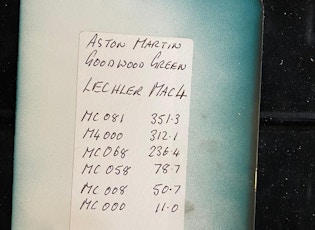 ASTON MARTIN
GOODWOOD GREEN
LECHLER MAC4
MC081 351.3
M4000 312.1
MC068 236.4
MC058 78.7
MC008 50.7
MC000 11.0